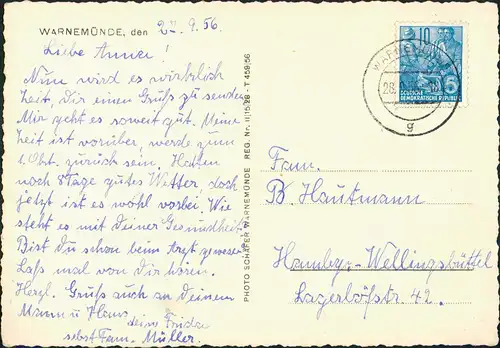 WARNEMÜNDE, den 27. 9. 56.
Liebe Annni!
Nun wird es wirklich
Zeit, Dir einen Gruß zu senden
Mir geht es soweit gut. Meine
Zeit ist vorüber, werde zum
1. Okt. zurück sein. Hatten
noch 8 Tage gutes Wetter, doch
jetzt ist es wohl vorbei. Wie
steht es mit Deiner Gesundheit?
Bist Du schon beim Arzt gewesen
Laß mal von Dir hören.
Herzl. Gruß auch an Deinen
Mann u. Hans
deine Frieda
selbst Fam. Müller.
PHOTO SCHÄFER WARNEMÜNDE REG. Nr. II|15|28 - T 459|56
WARNEMÜNDE
28.9.
g
10
5
DEUTSCHE
DEMOKRATISCHE REPUBLIK
Fam.
B. Hautmann
Hamburg-Wellingsbüttel
Lagerlöfstr. 42.